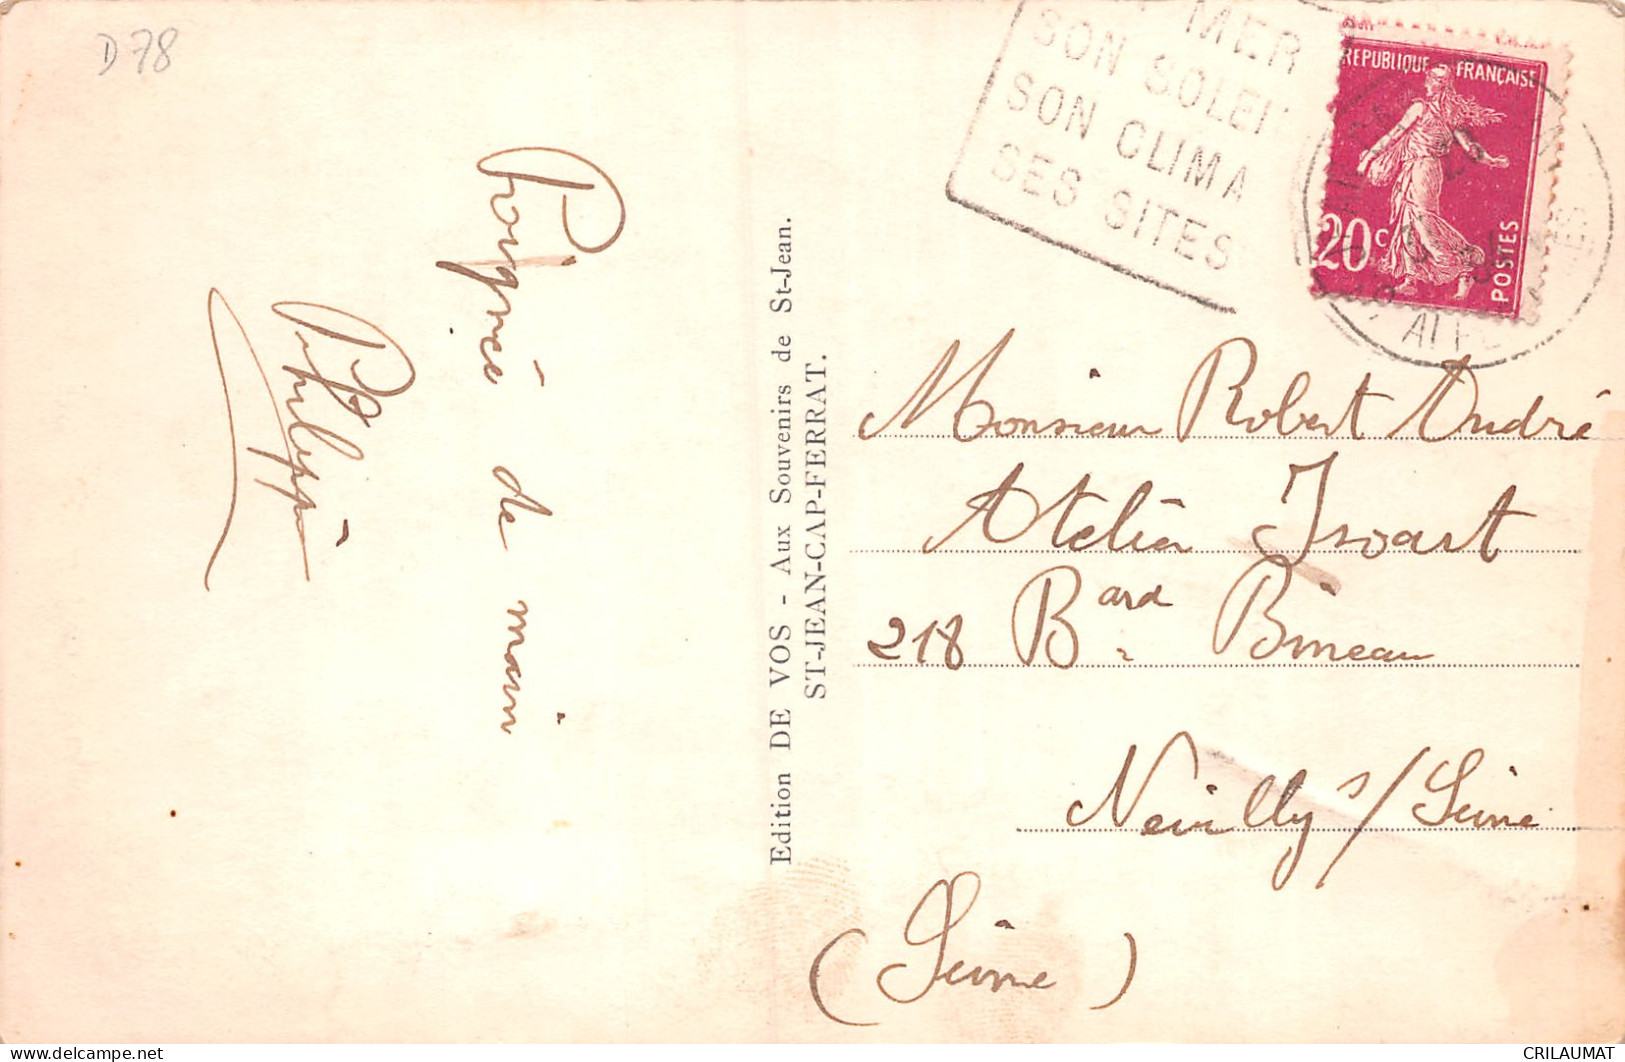 D 78
Poignée de main
Philippe
Edition DE VOS - Aux Souvenirs de St-Jean.
ST-JEAN-CAP-FERRAT.
MER
SON SOLEI
SON CLIMA
SES SITES
REPUBLIQUE FRANÇAISE
20c
POSTES
Monsieur Robert André
Atelier Isoart
218 Bard Bineau
Neuilly s/Seine
(Seine)
CRILAUMAT